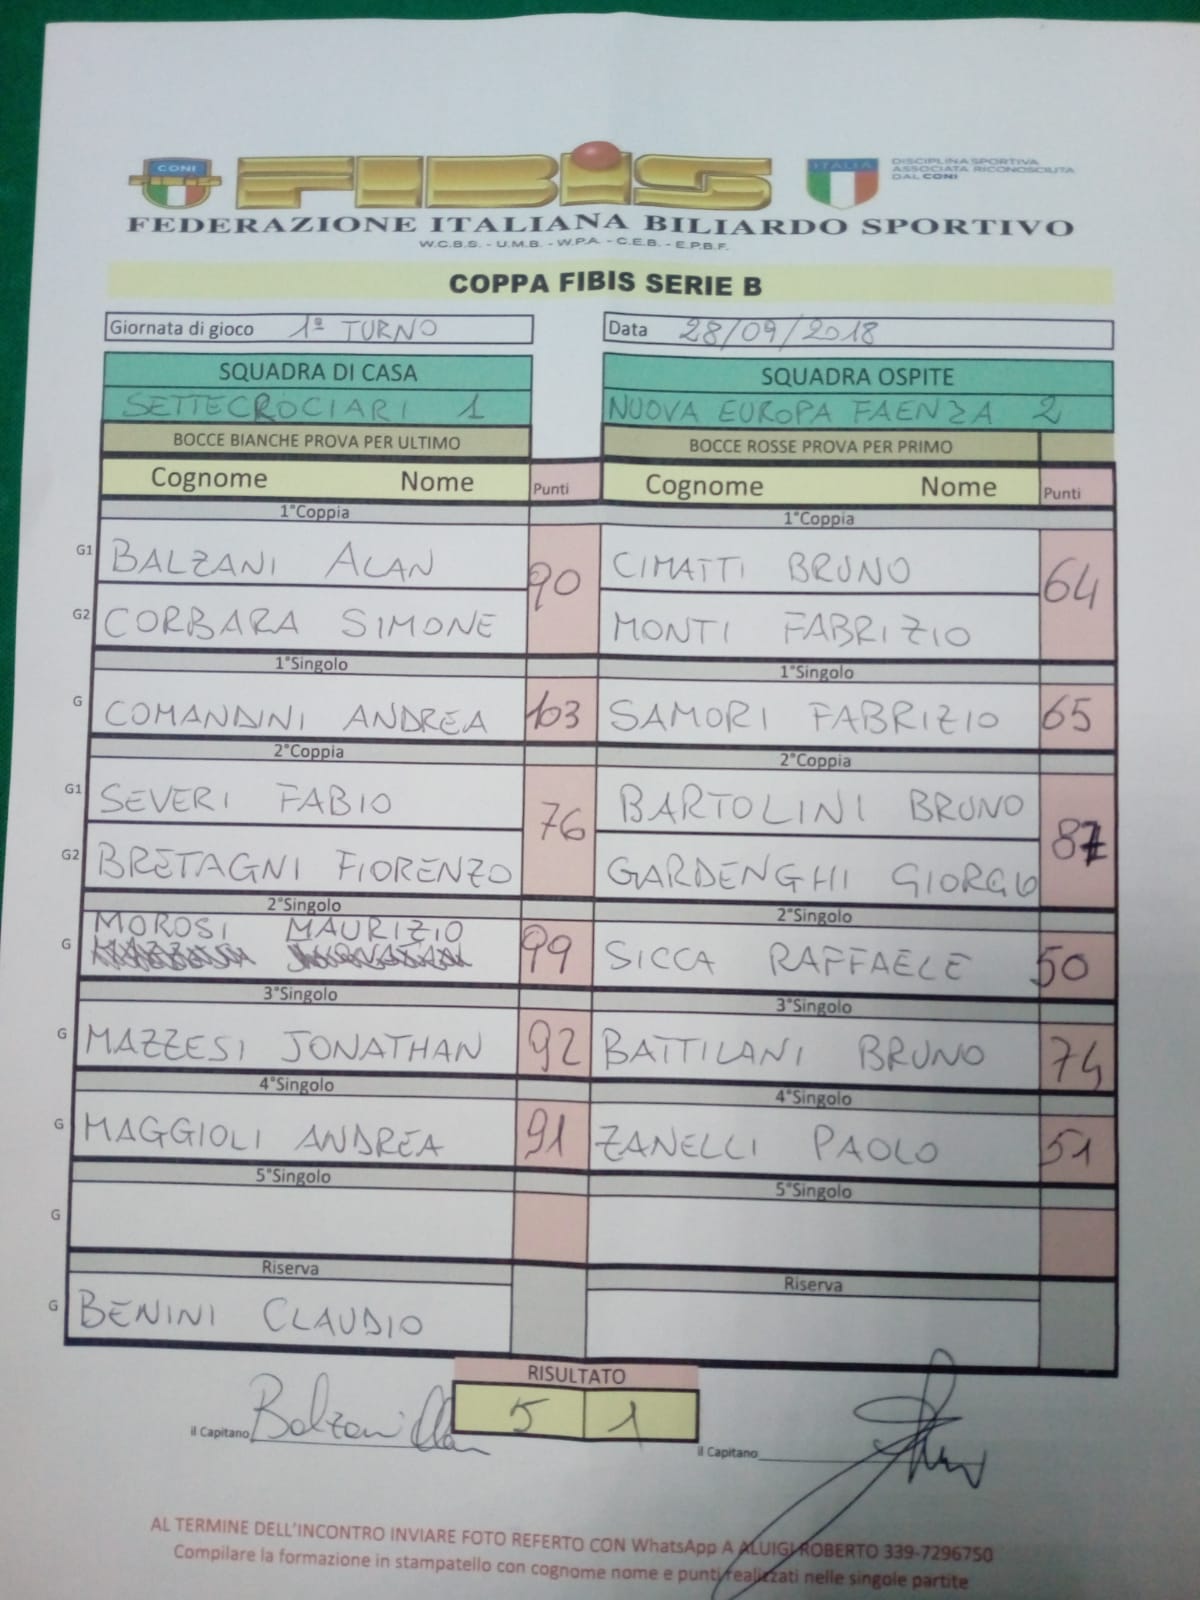 CONI
FIBIS
ITALIA
DISCIPLINA SPORTIVA
ASSOCIATA RICONOSCIUTA
DAL CONI
FEDERAZIONE ITALIANA BILIARDO SPORTIVO
W.C.B.S. - U.M.B. - W.P.A. - C.E.B. - E.P.B.F.
COPPA FIBIS SERIE B
Giornata di gioco 1º TURNO
Data 28/09/2018
SQUADRA DI CASA SQUADRA OSPITE
SETTECROCIARI 1 NUOVA EUROPA FAENZA 2
BOCCE BIANCHE PROVA PER ULTIMO BOCCE ROSSE PROVA PER PRIMO
Cognome Nome Punti Cognome Nome Punti
1°Coppia 1°Coppia
G1 BALZANI ALAN 90 CIMATTI BRUNO 64
G2 CORBARA SIMONE MONTI FABRIZIO
1°Singolo 1°Singolo
G COMANDINI ANDREA 103 SAMORI FABRIZIO 65
2°Coppia 2°Coppia
G1 SEVERI FABIO 76 BARTOLINI BRUNO 87
G2 BRETAGNI FIORENZO GARDENGHI GIORGIO
2°Singolo 2°Singolo
G MOROSI MAURIZIO 99 SICCA RAFFAELE 50
3°Singolo 3°Singolo
G MAZZESI JONATHAN 92 BATTILANI BRUNO 74
4°Singolo 4°Singolo
G MAGGIOLI ANDREA 91 ZANELLI PAOLO 51
5°Singolo 5°Singolo
G
Riserva Riserva
G BENINI CLAUDIO
RISULTATO
5 1
il Capitano Balzani Alan
il Capitano
AL TERMINE DELL'INCONTRO INVIARE FOTO REFERTO CON WhatsApp A ALUIGI ROBERTO 339-7296750
Compilare la formazione in stampatello con cognome nome e punti realizzati nelle singole partite